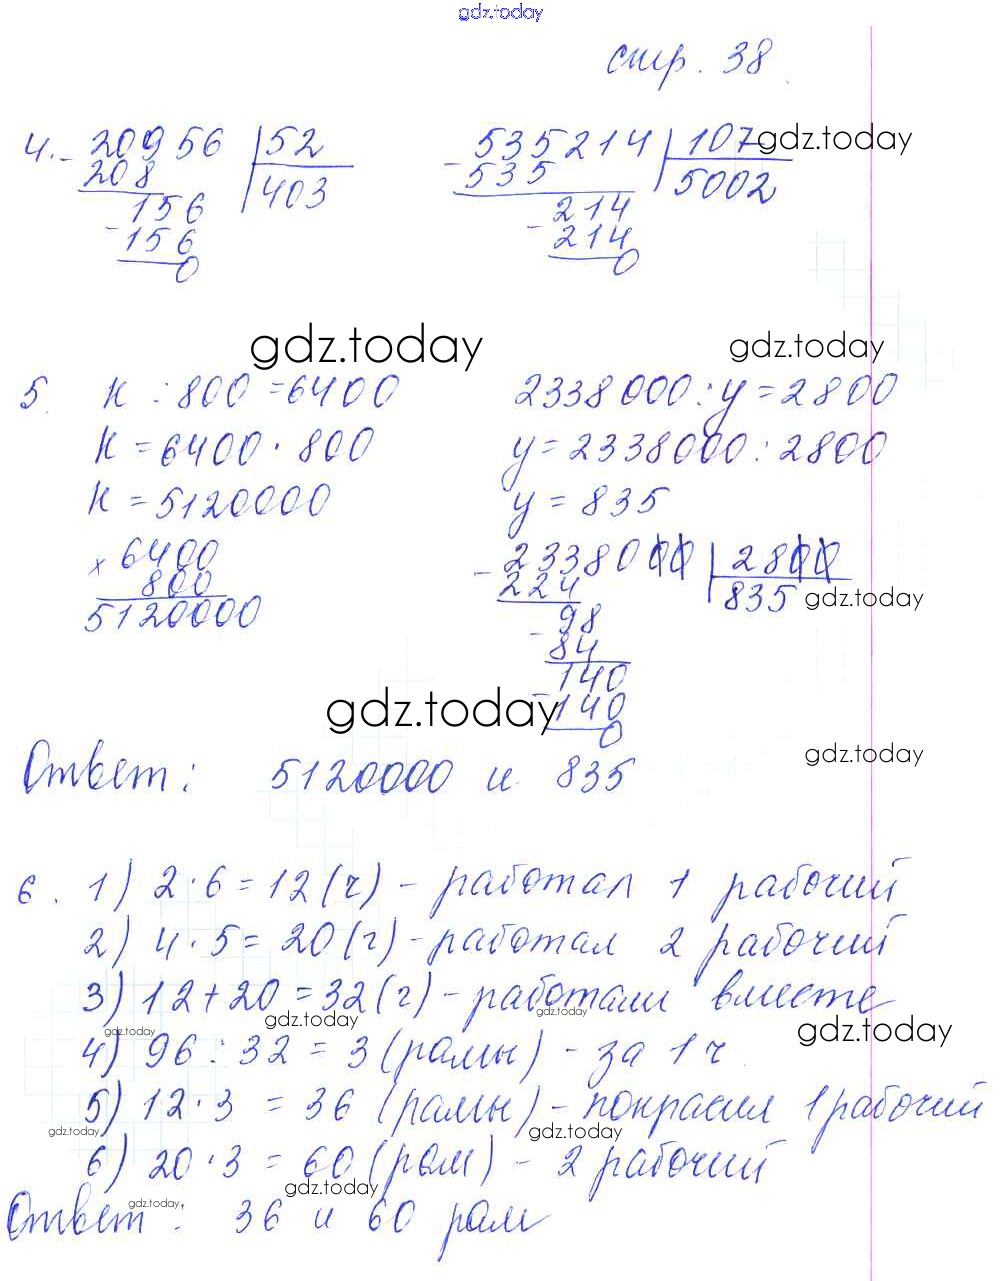 gdz.today
стр. 38
4. - 20956 | 52 - 535214 | 107 gdz.today
208 403 535 5002
156 214
- 156 - 214
0 0
gdz.today gdz.today
5. К : 800 = 6400 2338000 : у = 2800
К = 6400 · 800 у = 2338000 : 2800
К = 5120000 у = 835
× 6400 - 2338000 | 2800
800 224 835 gdz.today
5120000 98
- 84
140
gdz.today - 140
0
gdz.today
Ответ: 5120000 и 835
6. 1) 2 · 6 = 12 (ч) - работал 1 рабочий
2) 4 · 5 = 20 (ч) - работал 2 рабочий
3) 12 + 20 = 32 (ч) - работали вместе
gdz.today gdz.today
gdz.today gdz.today
4) 96 : 32 = 3 (рамы) - за 1 ч
5) 12 · 3 = 36 (рамы) - покрасил 1 рабочий
gdz.today gdz.today
6) 20 · 3 = 60 (рам) - 2 рабочий
gdz.today
gdz.today
Ответ: 36 и 60 рам